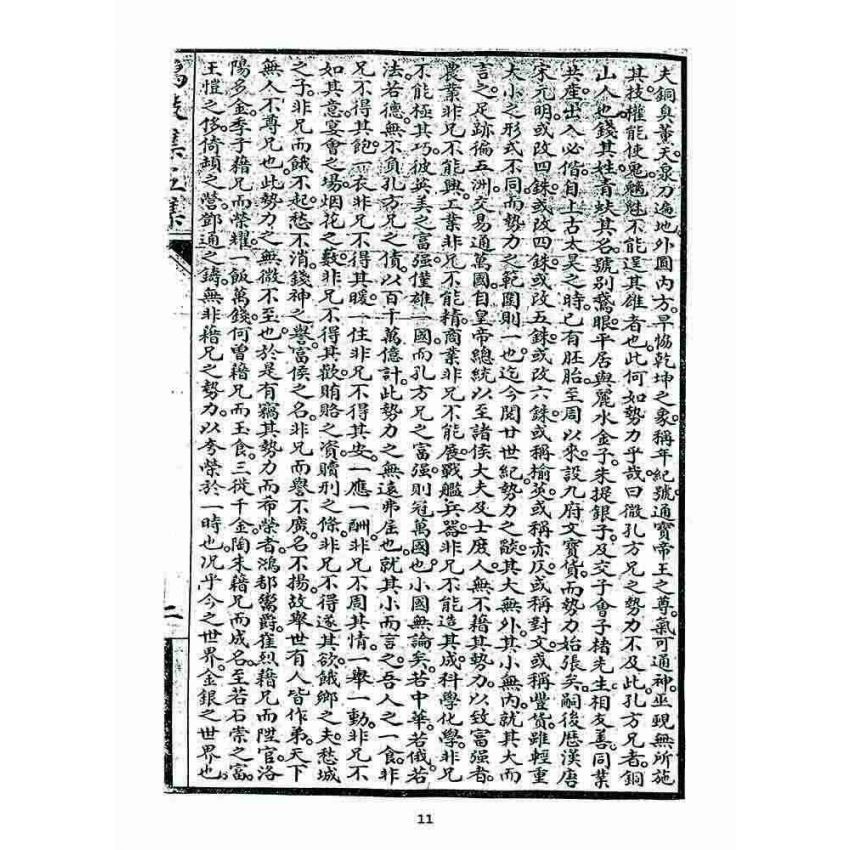 夫銅臭薰天。泉刀遍地。外圓內方。早協乾坤之象。稱年紀號。通寶帝王之尊。氣可通神。巫覡無所施
其技。權能使鬼。魑魅不能逞其雄者也。此何如勢力乎哉。曰微孔方兄之勢力不及此。孔方兄者。銅
山人也。錢其姓。青蚨其名。號別鵝眼。平居與麗水金子。朱提銀子。及交子會子楮先生相友善。同業
共產。出入必偕。自上古太昊之時。已有胚胎。至周以來。設九府文寶貨。而勢力始張矣。嗣後歷漢唐
宋元明。或改四銖。或改四銖。或改五銖。或改六銖。或稱榆莢。或稱赤仄。或稱對文。或稱豐貨。雖輕重
大小之形式不同。而勢力之範圍則一也。迄今閱廿世紀。勢力之燄。其大無外。其小無內。就其大而
言之。足跡徧五洲。交易通萬國。自皇帝總統。以至諸侯大夫及士庶人。無不藉其勢力。以致富强者。
農業非兄不能興。工業非兄不能精。商業非兄不能展。戰艦兵器。非兄不能造其成。科學化學。非兄
不能極其巧。彼英美之富强。僅雄一國。而孔方兄之富强。則冠萬國也。小國無論矣。若中華若俄若
法若德。無不負孔方兄之債。以百千萬億計。此勢力之無遠弗屆也。就其小而言之。吾人之一食。非
兄不得其飽。一衣非兄不得其暖。一住非兄不得其安。一應一酬。非兄不周其情。一舉一動。非兄不
如其意。宴會之場。烟花之藪。非兄不得其歡。賄賂之資。贖刑之條。非兄不得遂其欲。餓鄉之夫。愁城
之子。非兄而餓不起。愁不消。錢神之譽。富侯之名。非兄而譽不廣。名不揚。故舉世有人皆作弟。天下
無人不尊兄也。此勢力之無微不至也。於是有竊其勢力而希榮者。鴻都鬻爵。崔烈藉兄而陞官。洛
陽多金。季子藉兄而榮耀。一飯萬錢。何曾藉兄而玉食。三徙千金。陶朱藉兄而成名。至若石崇之富。
王愷之侈。倚頓之營。鄧通之鑄。無非藉兄之勢力。以夸榮於一時也。况乎今之世界。金銀之世界也。
集五集
二
11